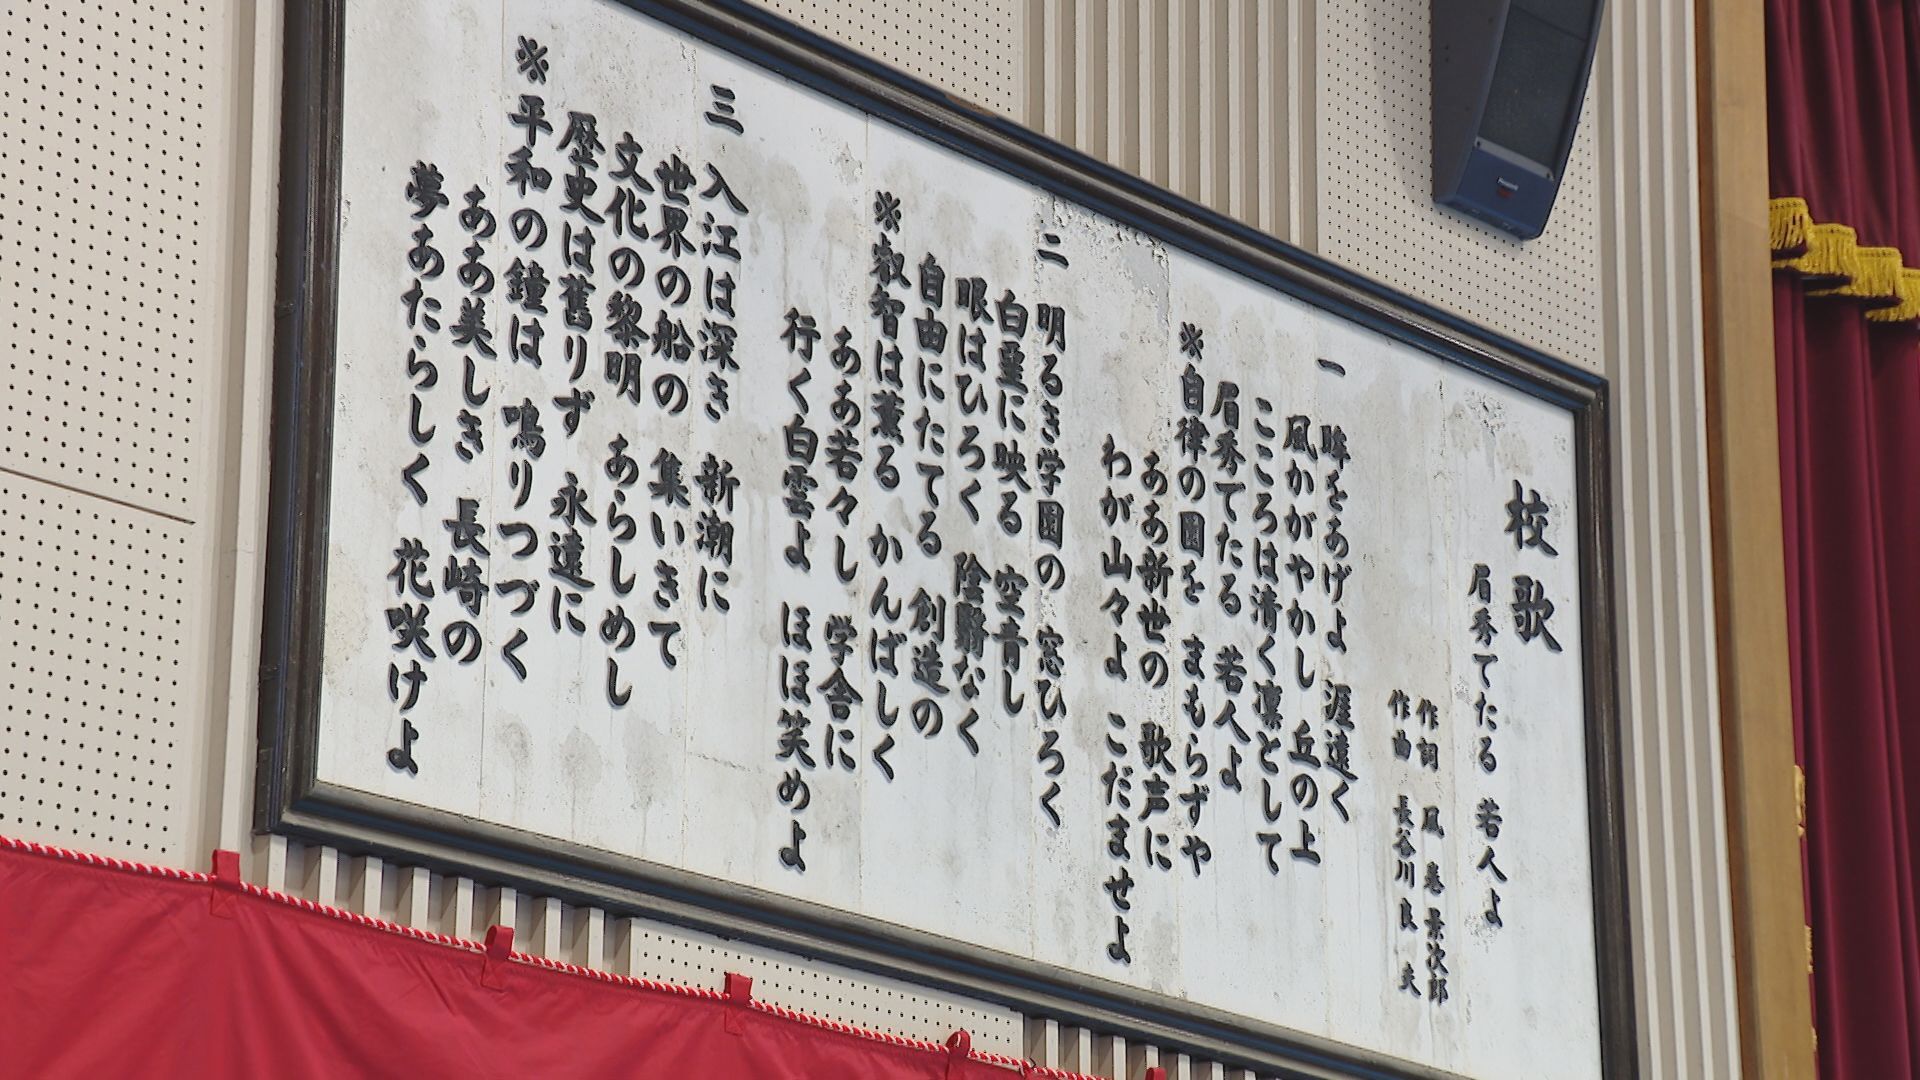 校歌
眉秀でたる 若人よ
作詞 風巻景次郎
作曲 長谷川良夫
一 眸をあげよ 涯遠く
風かがやかし 丘の上
こころは清く凛として
眉秀でたる 若人よ
※自律の園を まもらずや
ああ新世の 歌声に
わが山々よ こだませよ
二 明るき学園の 窓ひろく
白堊に映る 空青し
眼はひろく 陰翳なく
自由にたてる 創造の
※叡智は薫る かんばしく
ああ若々し 学舎に
行く白雲よ ほほ笑めよ
三 入江は深き 新潮に
世界の船の 集いきて
文化の黎明 あらしめし
歴史は舊りず 永遠に
※平和の鐘は 鳴りつづく
ああ美しき 長崎の
夢あたらしく 花咲けよ